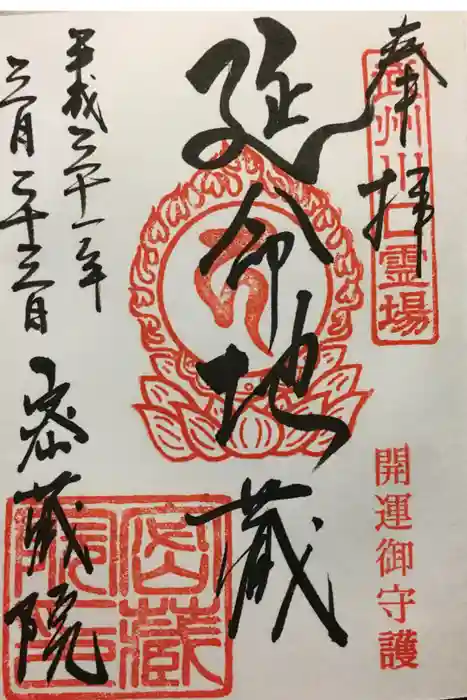 奉拝
武州川口霊場
開運御守護
延命地蔵
平成二十一年
三月二十三日
密蔵院
密蔵院